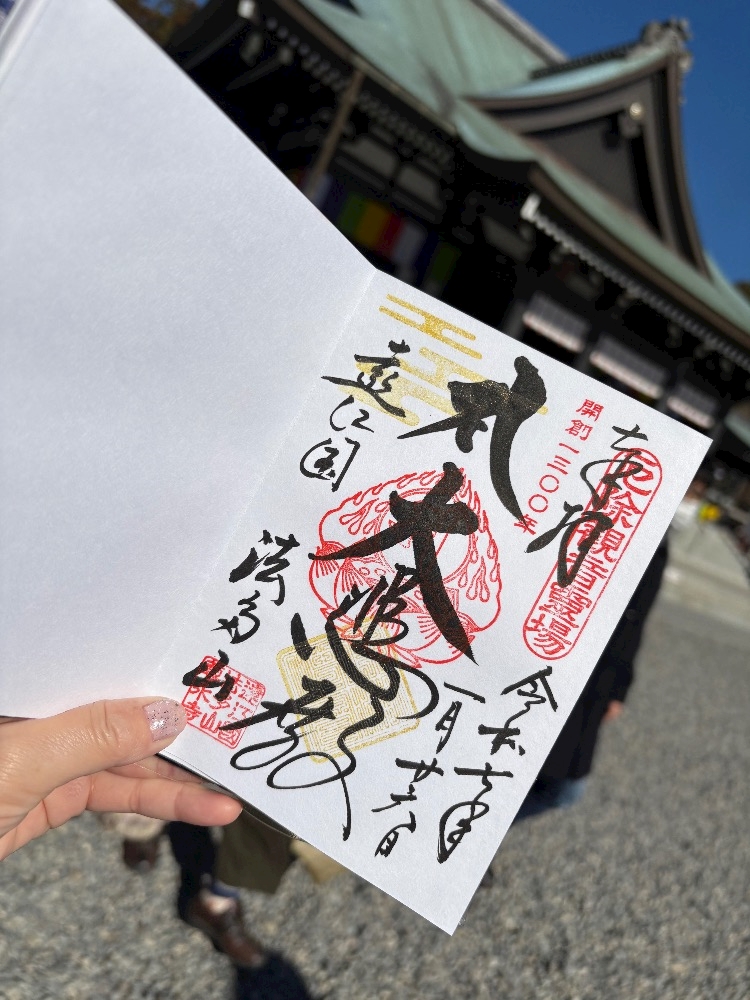 奉拝
厄除観音靈場
開創一三〇〇年
令和七年
一月廿六日
大悲殿
遠江国
法多山